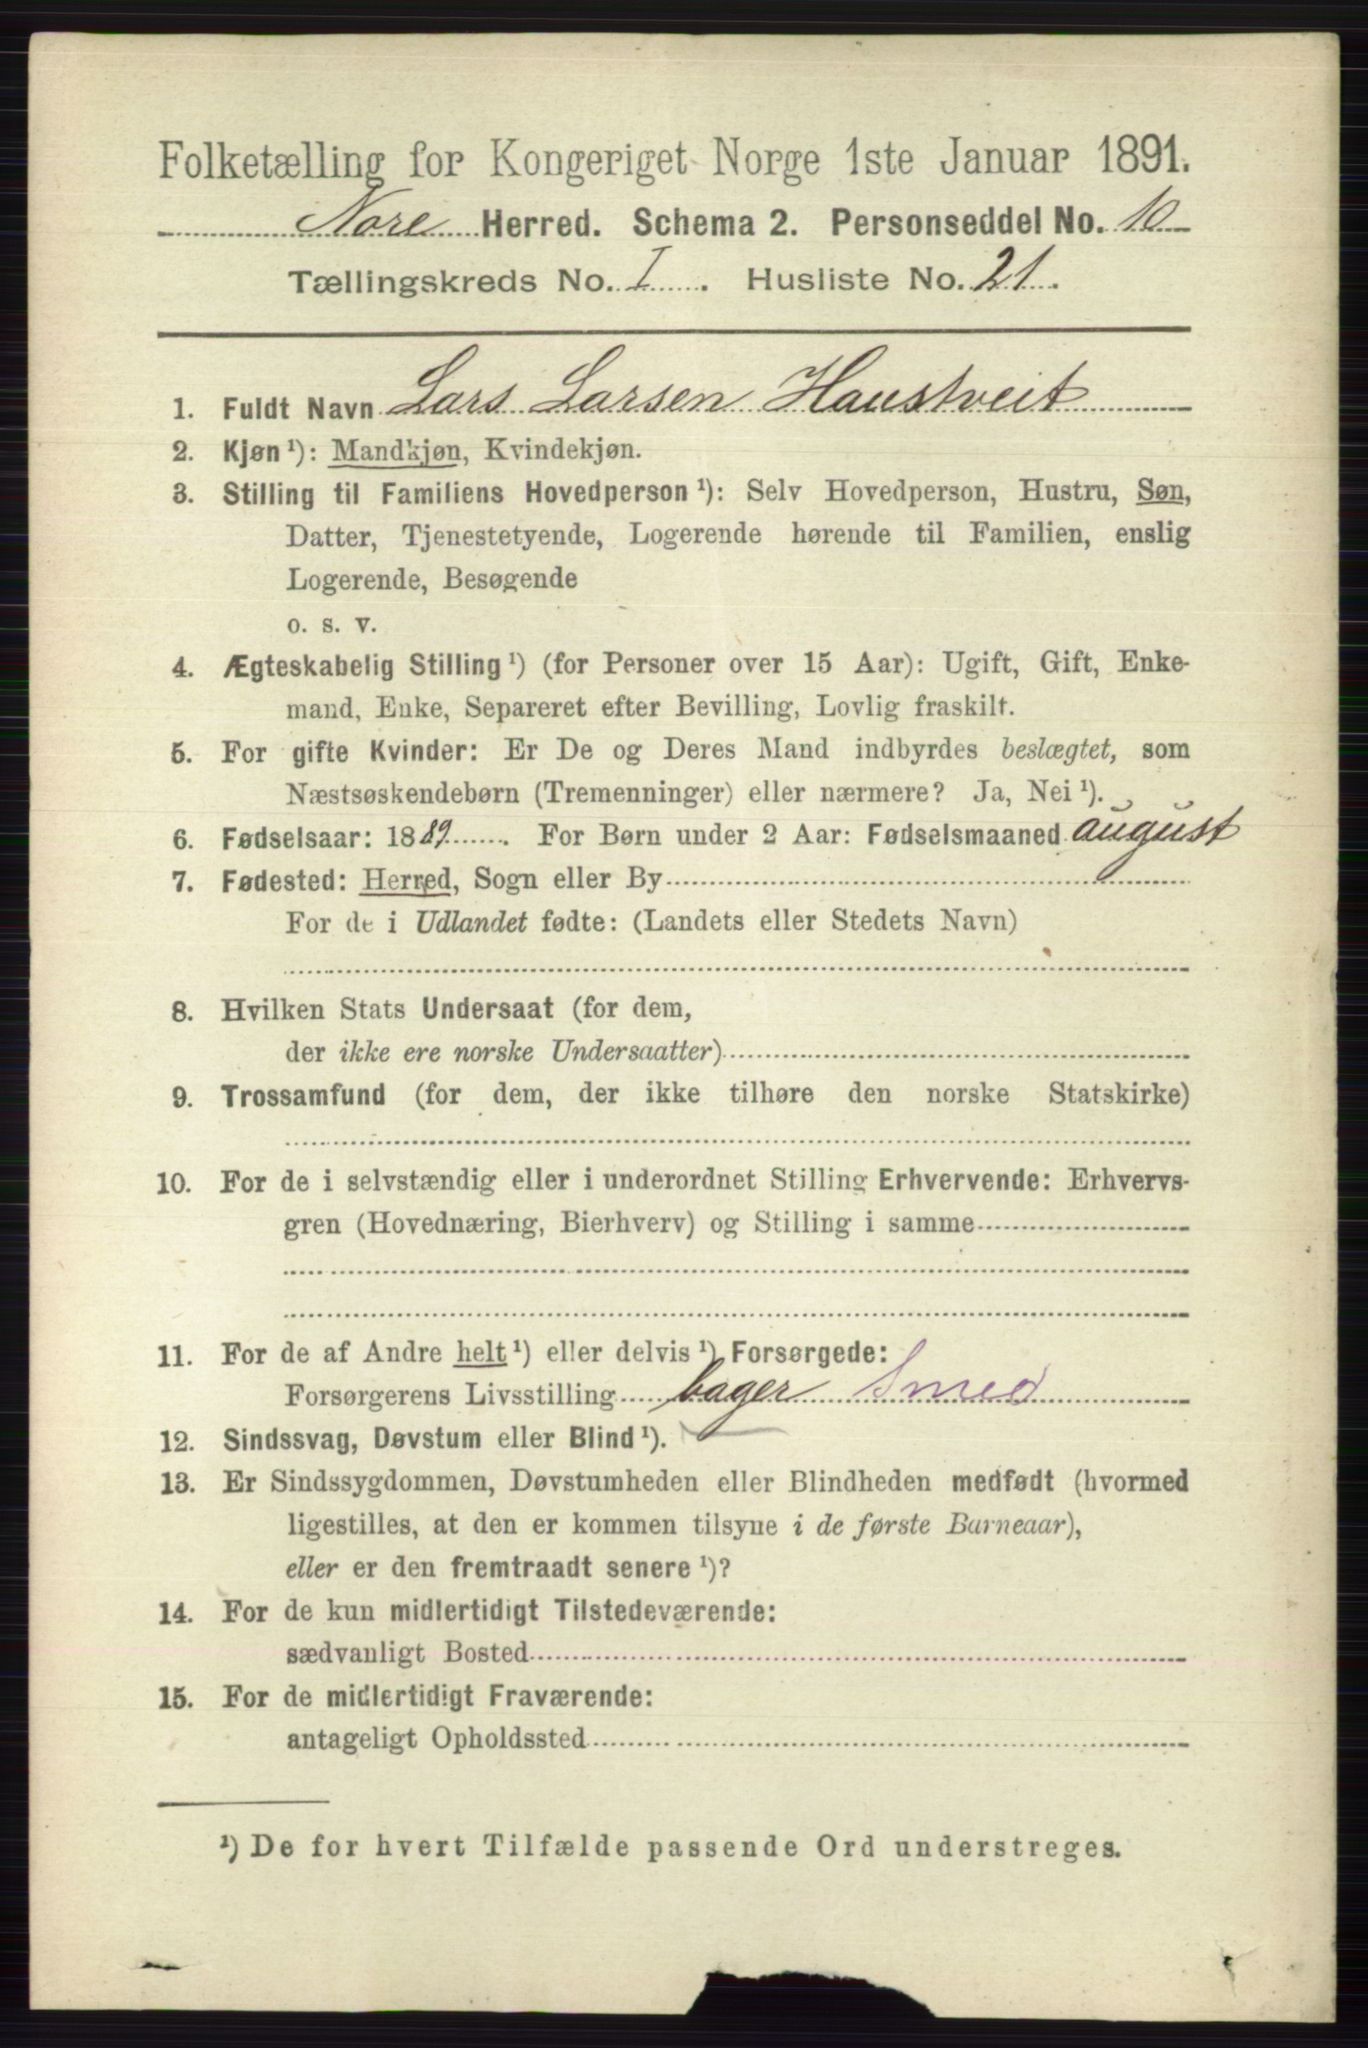 Folketælling for Kongeriget Norge 1ste Januar 1891.
Nore Herred. Schema 2. Personseddel No. 10
Tællingskreds No. I. Husliste No. 21.
1. Fuldt Navn Lars Larsen Haustveit
2. Kjøn¹): Mandkjøn, Kvindekjøn.
3. Stilling til Familiens Hovedperson¹): Selv Hovedperson, Hustru, Søn,
Datter, Tjenestetyende, Logerende hørende til Familien, enslig
Logerende, Besøgende
o. s. v.
4. Ægteskabelig Stilling¹) (for Personer over 15 Aar): Ugift, Gift, Enke-
mand, Enke, Separeret efter Bevilling, Lovlig fraskilt.
5. For gifte Kvinder: Er De og Deres Mand indbyrdes beslægtet, som
Næstsøskendebørn (Tremenninger) eller nærmere? Ja, Nei¹).
6. Fødselsaar: 1889. For Børn under 2 Aar: Fødselsmaaned august
7. Fødested: Herred, Sogn eller By
For de i Udlandet fødte: (Landets eller Stedets Navn)
8. Hvilken Stats Undersaat (for dem,
der ikke ere norske Undersaatter)
9. Trossamfund (for dem, der ikke tilhøre den norske Statskirke)
10. For de i selvstændig eller i underordnet Stilling Erhvervende: Erhvervs-
gren (Hovednæring, Bierhverv) og Stilling i samme
11. For de af Andre helt¹) eller delvis¹) Forsørgede:
Forsørgerens Livsstilling bager Smed
12. Sindssvag, Døvstum eller Blind¹).
13. Er Sindssygdommen, Døvstumheden eller Blindheden medfødt (hvormed
ligestilles, at den er kommen tilsyne i de første Barneaar),
eller er den fremtraadt senere¹)?
14. For de kun midlertidigt Tilstedeværende:
sædvanligt Bosted
15. For de midlertidigt Fraværende:
antageligt Opholdssted
¹) De for hvert Tilfælde passende Ord understreges.